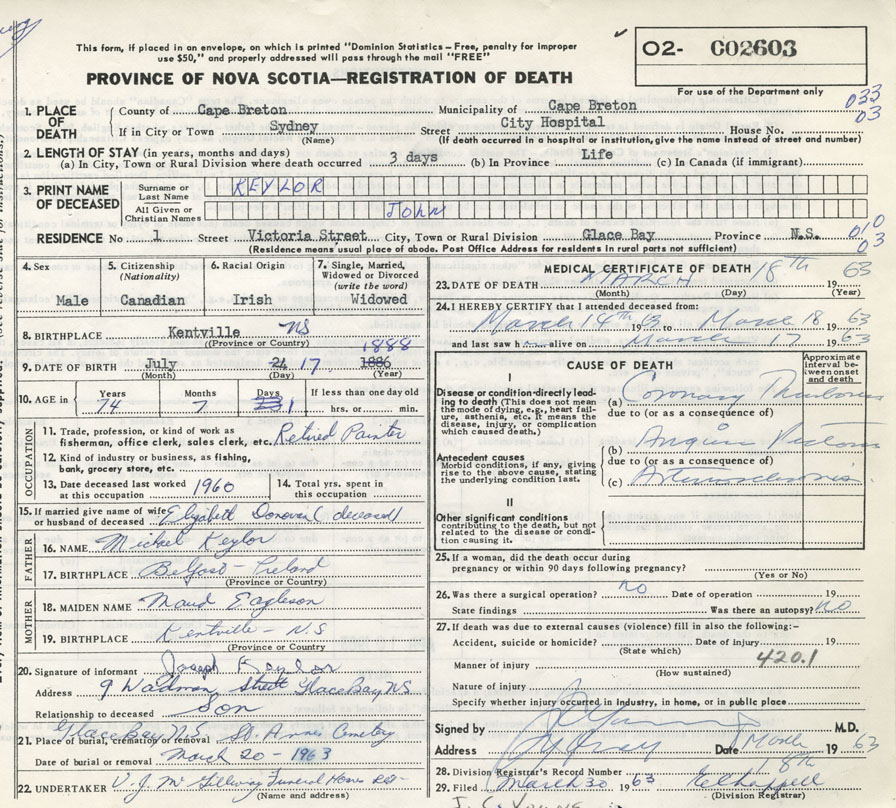 This form, if placed in an envelope, on which is printed "Dominion Statistics – Free, penalty for improper
use $50," and properly addressed will pass through the mail "FREE"
O2- C02603
PROVINCE OF NOVA SCOTIA—REGISTRATION OF DEATH
For use of the Department only
033
03
1. PLACE OF DEATH County of Cape Breton Municipality of Cape Breton
If in City or Town Sydney Street City Hospital House No.
(Name) (If death occurred in a hospital or institution, give the name instead of street and number)
2. LENGTH OF STAY (in years, months and days)
(a) In City, Town or Rural Division where death occurred 3 days (b) In Province Life (c) In Canada (if immigrant)
3. PRINT NAME OF DECEASED Surname or Last Name KEYLOR
All Given or Christian Names JOHN
010
03
RESIDENCE No 1 Street Victoria Street City, Town or Rural Division Glace Bay Province N.S.
(Residence means usual place of abode. Post Office Address for residents in rural parts not sufficient)
4. Sex 5. Citizenship (Nationality) 6. Racial Origin 7. Single, Married, Widowed or Divorced (write the word)
Male Canadian Irish Widowed
8. BIRTHPLACE Kentville NS
(Province or Country)
1888
9. DATE OF BIRTH July 24 17 1886
(Month) (Day) (Year)
10. AGE in Years Months Days If less than one day old
74 7 1 hrs. or min.
OCCUPATION
11. Trade, profession, or kind of work as
fisherman, office clerk, sales clerk, etc. Retired Painter
12. Kind of industry or business, as fishing,
bank, grocery store, etc.
13. Date deceased last worked at this occupation 1960 14. Total yrs. spent in this occupation
15. If married give name of wife or husband of deceased Elizabeth Donovan (deceased)
FATHER
16. NAME Mickel Keylor
17. BIRTHPLACE Belfast - Ireland
(Province or Country)
MOTHER
18. MAIDEN NAME Maud Eagleson
19. BIRTHPLACE Kentville - N.S
(Province or Country)
20. Signature of informant Joseph Keylor
Address 9 Wadman Street Glace Bay NS
Relationship to deceased Son
Glace Bay N.S. St. Anns Cemetery
21. Place of burial, cremation or removal
Date of burial or removal March 20 - 1963
22. UNDERTAKER V. J. Mc Gillivray Funeral Home
(Name and address)
MEDICAL CERTIFICATE OF DEATH
23. DATE OF DEATH MARCH 18th 19 63
(Month) (Day) (Year)
24. I HEREBY CERTIFY that I attended deceased from:
March 14th 63 to March 18 19 63
and last saw h alive on March 17 19 63
CAUSE OF DEATH
Approximate interval between onset and death
I
Disease or condition directly leading to death (This does not mean the mode of dying, e.g., heart failure, asthenia, etc. It means the disease, injury, or complication which caused death.)
(a) Coronary Thrombosis
due to (or as a consequence of)
Antecedent causes
Morbid conditions, if any, giving rise to the above cause, stating the underlying condition last.
(b) Angina Pectoris
due to (or as a consequence of)
(c) Arteriosclerosis
II
Other significant conditions
contributing to the death, but not related to the disease or condition causing it.
25. If a woman, did the death occur during
pregnancy or within 90 days following pregnancy?
(Yes or No)
26. Was there a surgical operation? no Date of operation 19
State findings Was there an autopsy? No
27. If death was due to external causes (violence) fill in also the following:-
Accident, suicide or homicide? Date of injury 19
(State which)
420.1
Manner of injury
(How sustained)
Nature of injury
Specify whether injury occurred in industry, in home, or in public place
Signed by M.D.
Address Date March 19 63
18th
28. Division Registrar's Record Number
29. Filed March 30 1963
(Division Registrar)